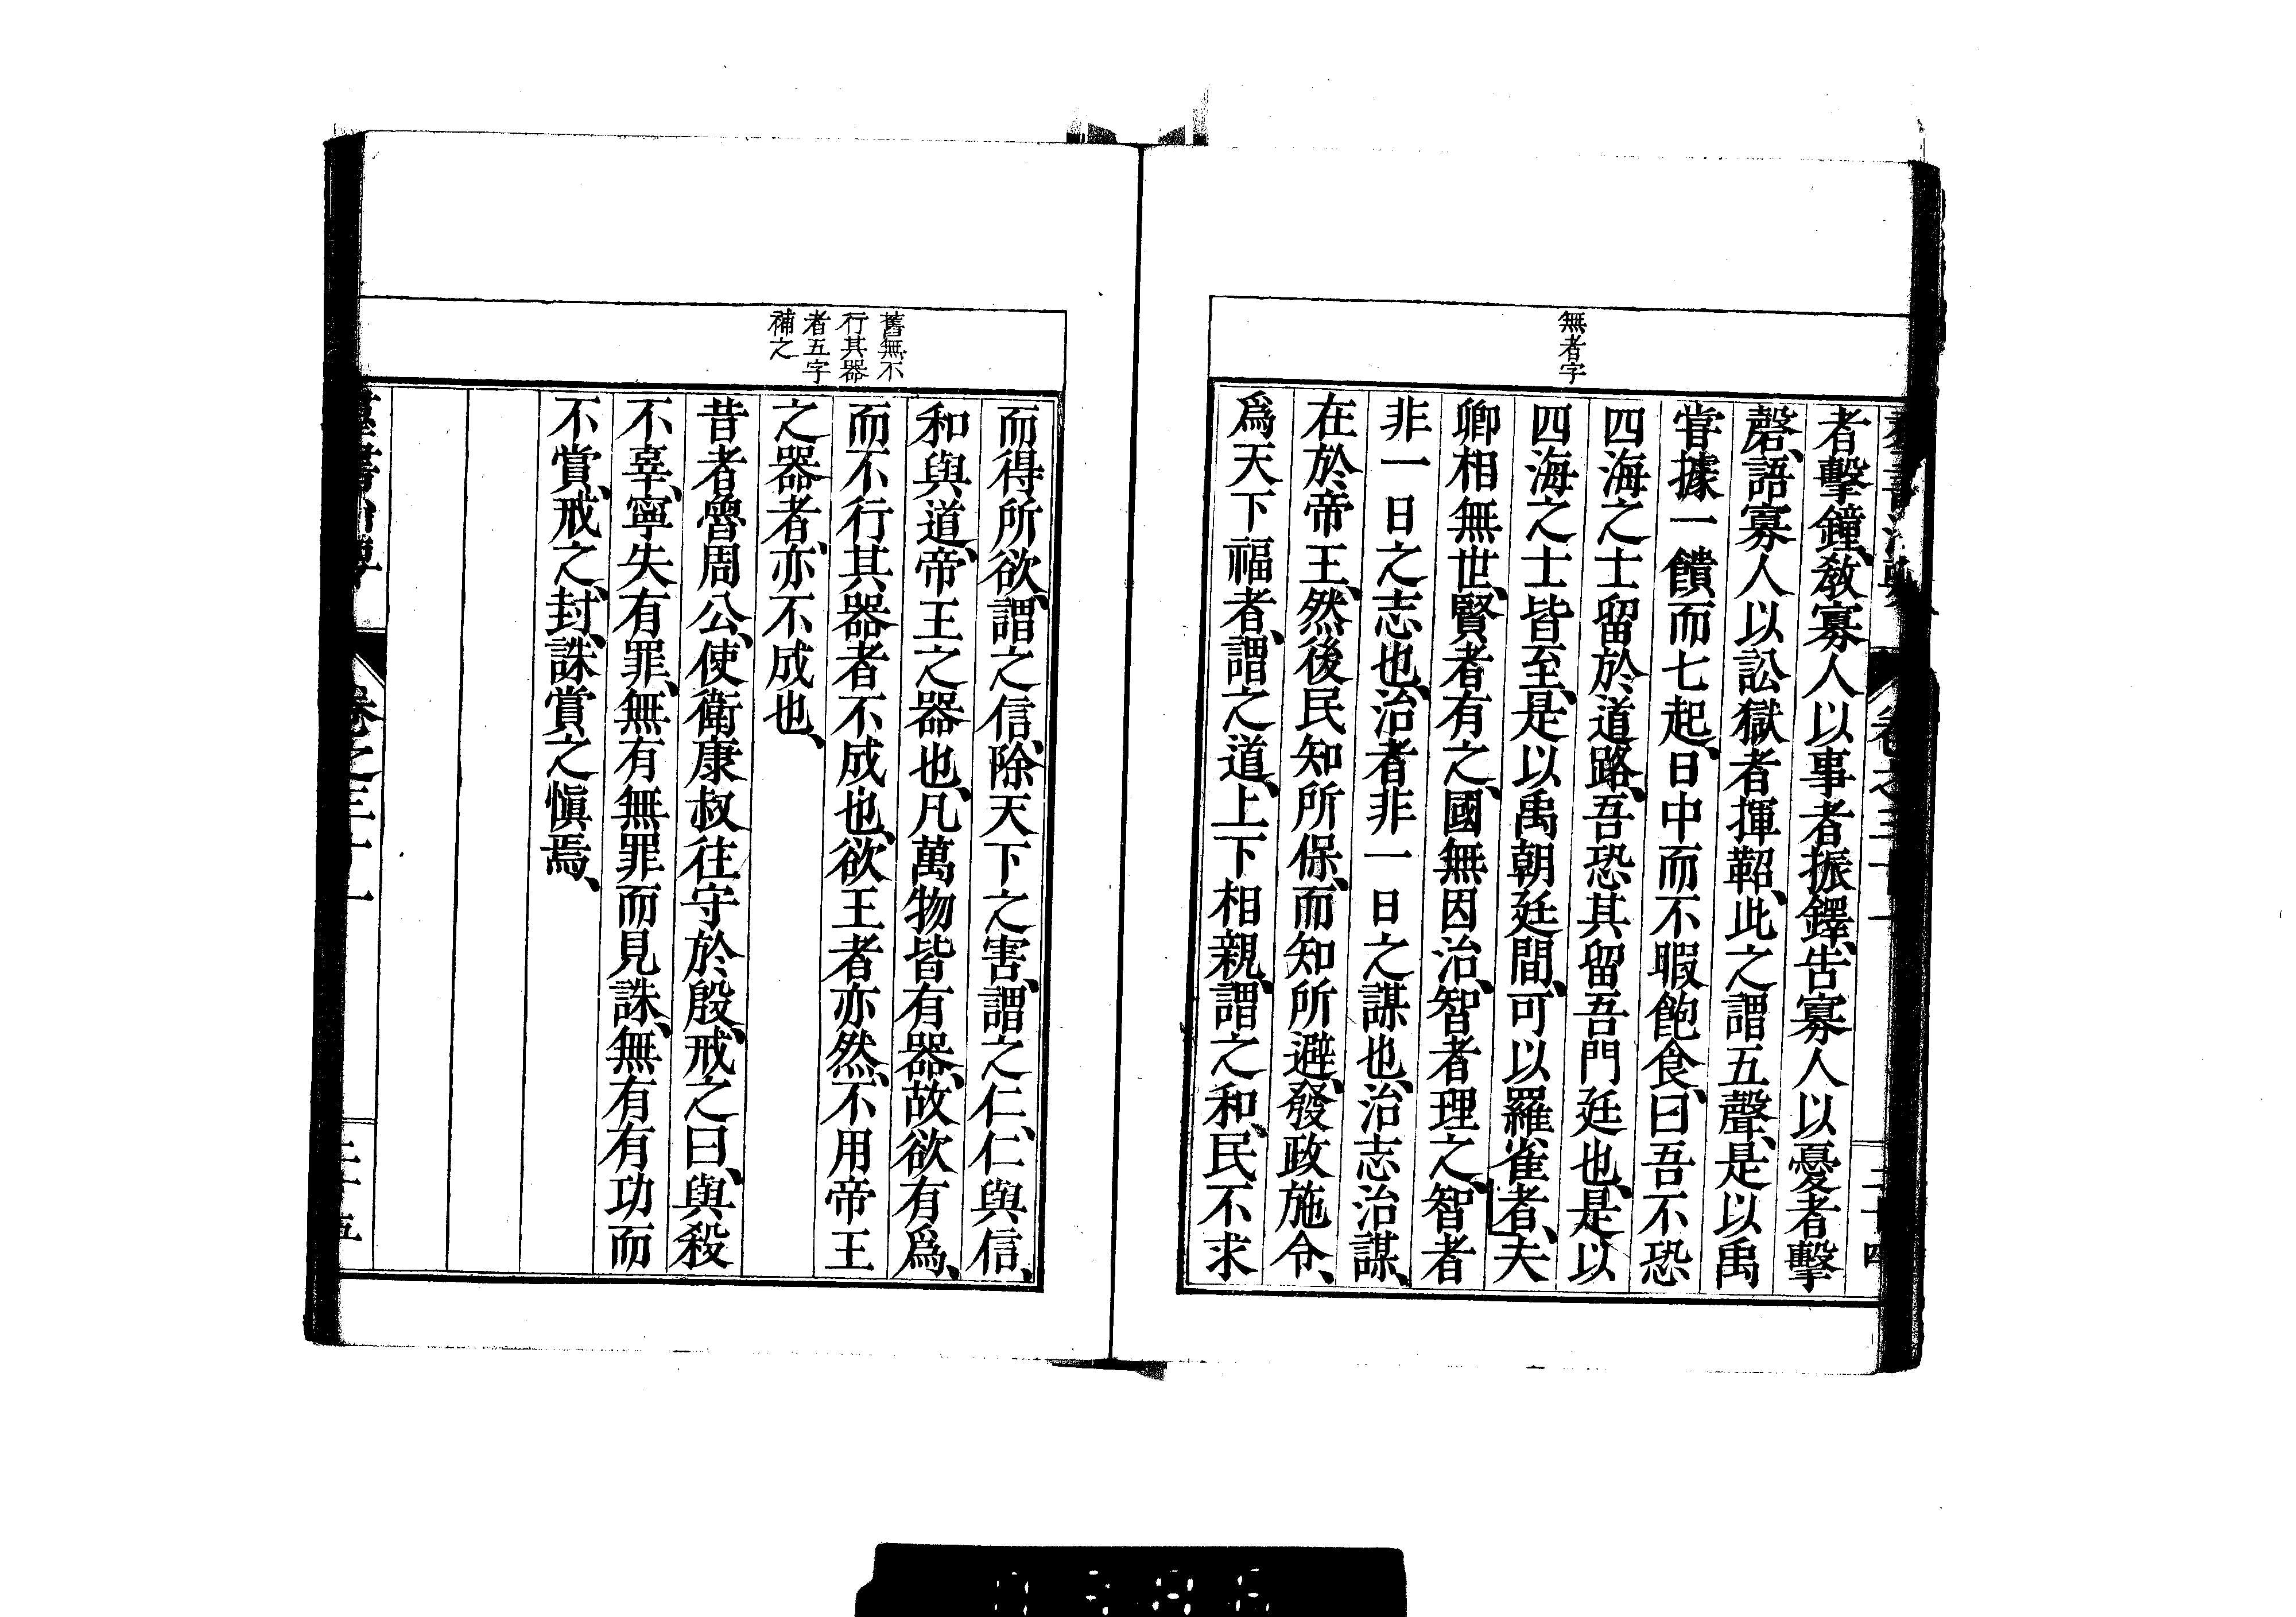 無者字
者擊鐘、敎寡人以事者振鐸、吿寡人以憂者擊
磬、語寡人以訟獄者揮鞀、此之謂五聲、是以禹
嘗據一饋而七起、日中而不暇飽食、曰吾不恐
四海之士留於道路、吾恐其留吾門廷也、是以
四海之士皆至、是以禹朝廷間、可以羅雀者、夫
卿相無世、賢者有之、國無因治、智者理之、智者
非一日之志也、治者非一日之謀也、治志治謀、
在於帝王、然後民知所保、而知所避、發政施令、
爲天下福者、謂之道、上下相親、謂之和、民不求
舊無不
行其器
者五字
補之
而得所欲、謂之信、除天下之害、謂之仁、仁與信、
和與道、帝王之器也、凡萬物皆有器、故欲有爲、
而不行其器者不成也、欲王者亦然、不用帝王
之器者、亦不成也、
昔者魯周公、使衛康叔往守於殷、戒之曰、與殺
不辜、寧失有罪、無有無罪而見誅、無有有功而
不賞、戒之、封、誅賞之愼焉、
卷之三十一